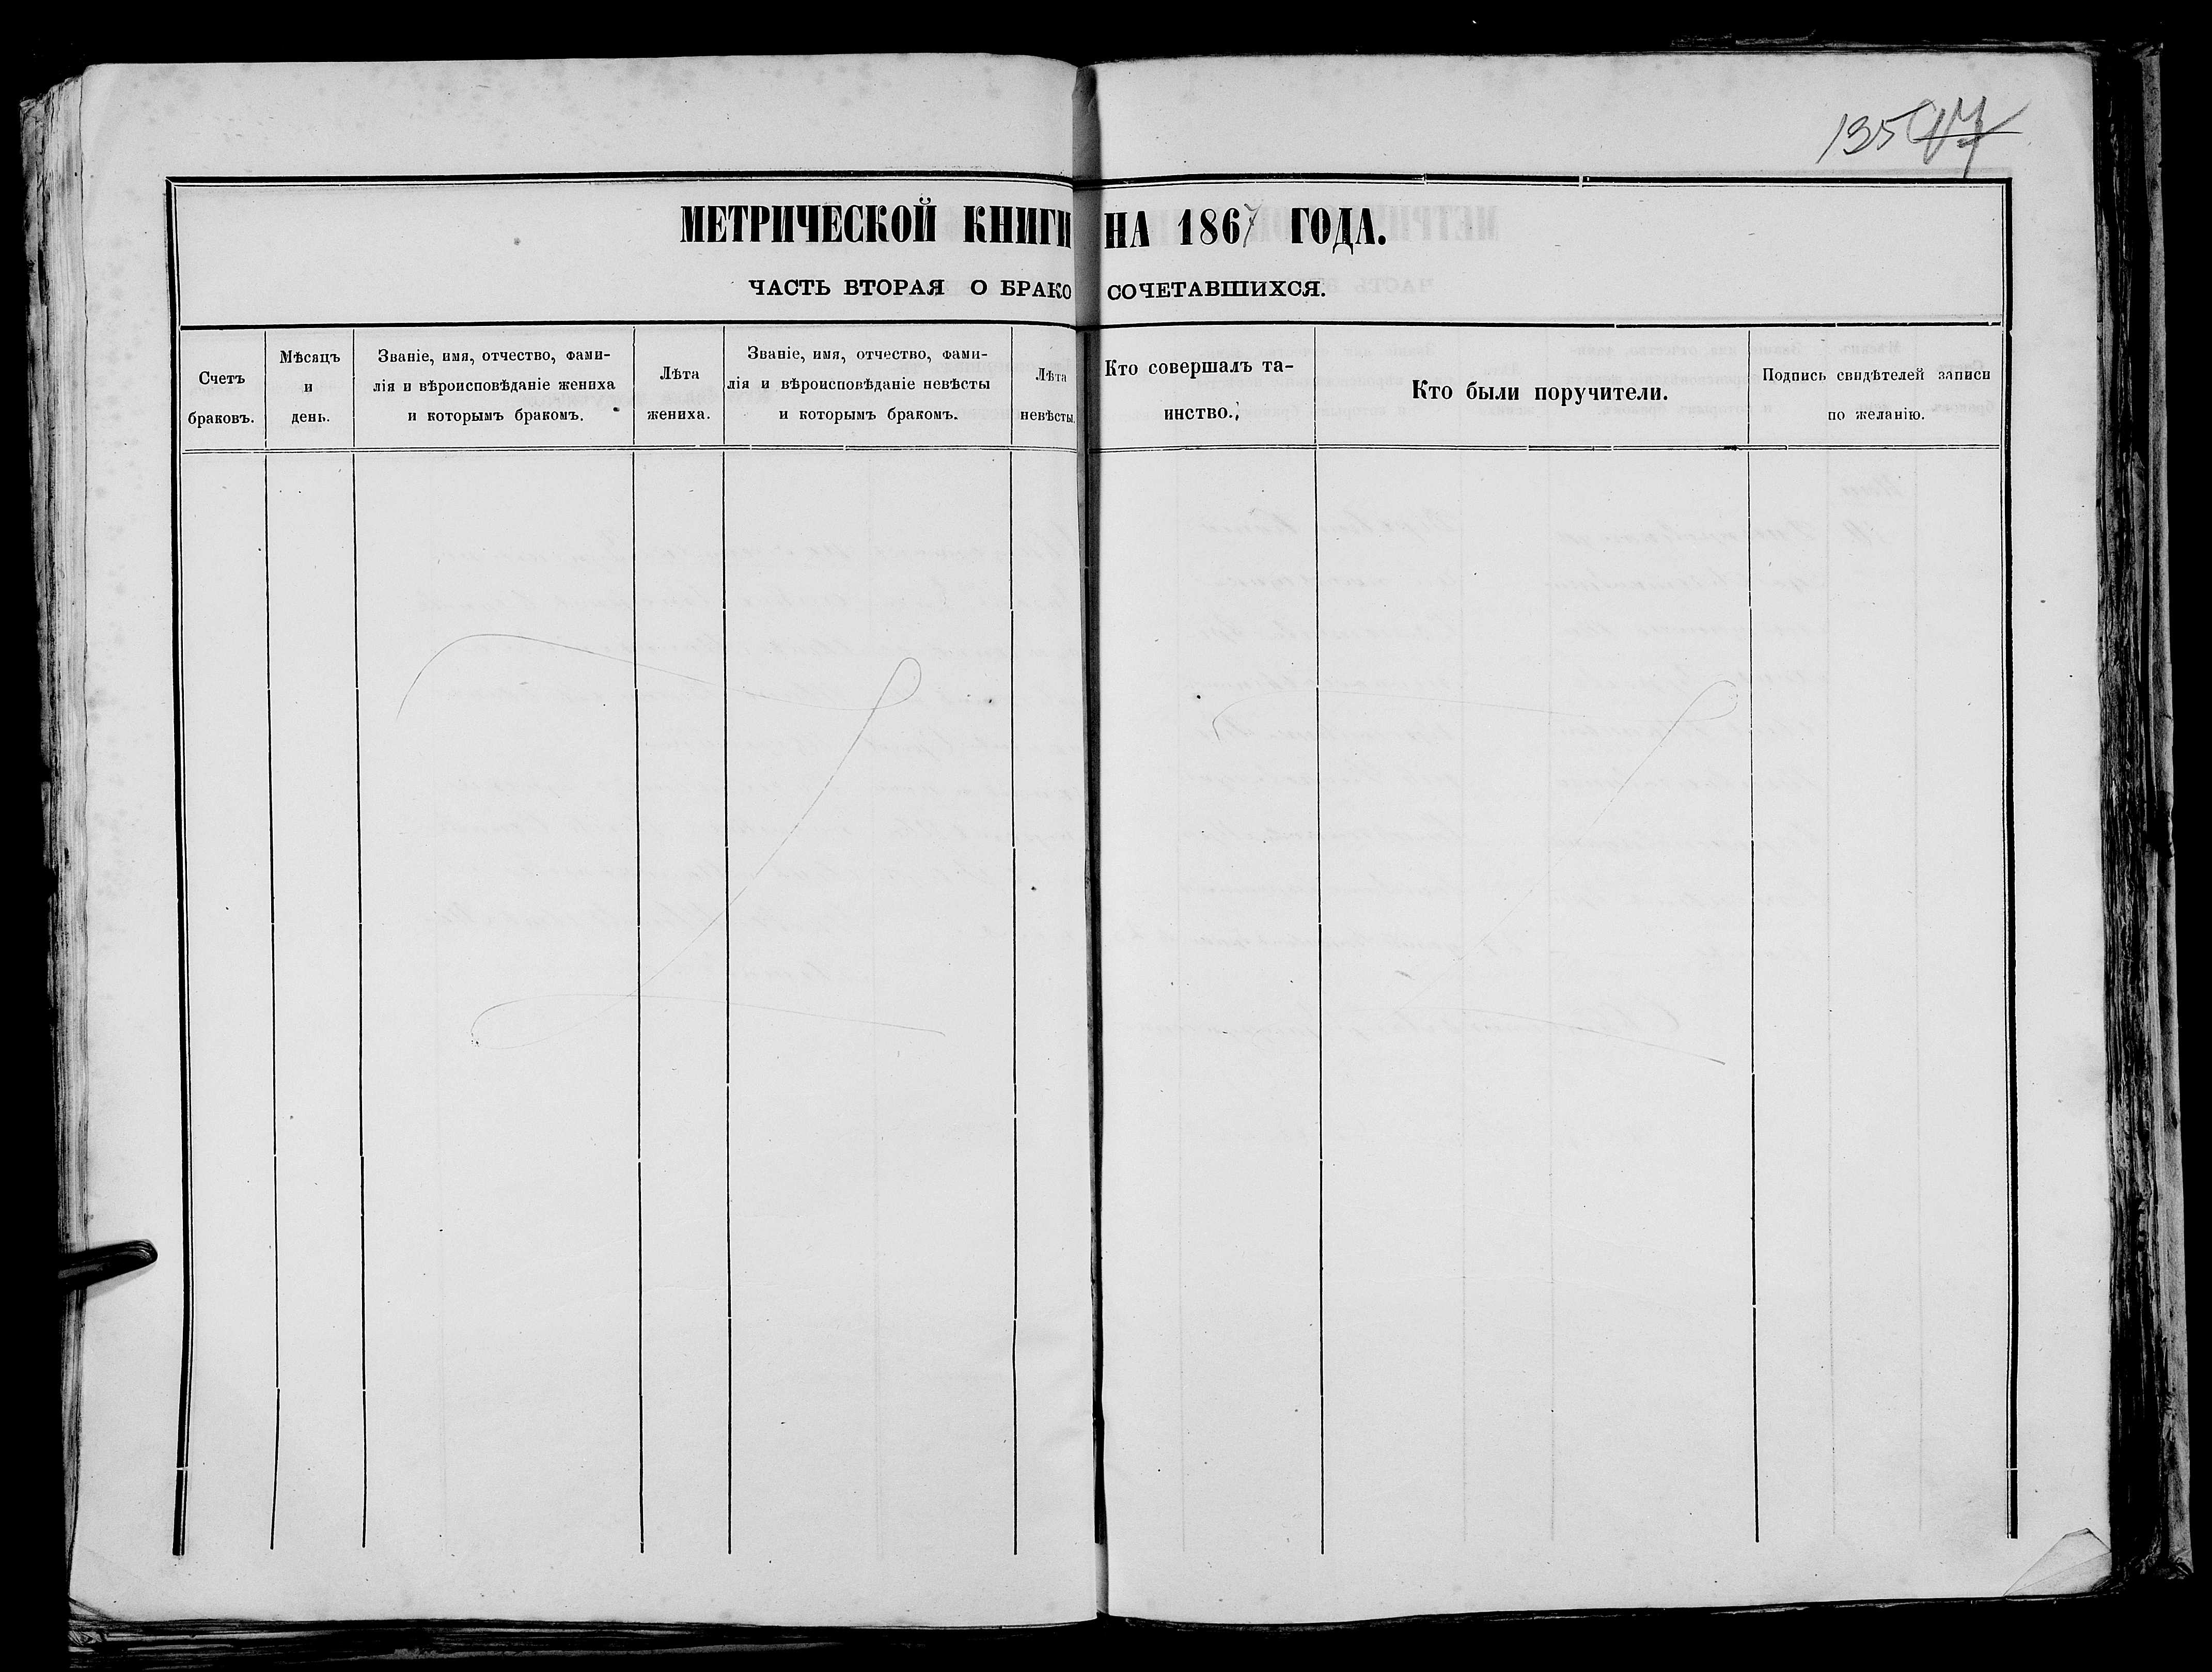 135 97
МЕТРИЧЕСКОЙ КНИГИ НА 1867 ГОДА.
ЧАСТЬ ВТОРАЯ О БРАКОСОЧЕТАВШИХСЯ.
Счетъ
браковъ.
Мѣсяцъ
и
день.
Званіе, имя, отчество, фами-
лія и вѣроисповѣданіе жениха
и которымъ бракомъ.
Лѣта
жениха.
Званіе, имя, отчество, фами-
лія и вѣроисповѣданіе невѣсты
и которымъ бракомъ.
Лѣта
невѣсты.
Кто совершалъ та-
инство.
Кто были поручители.
Подпись свидѣтелей записи
по желанію.